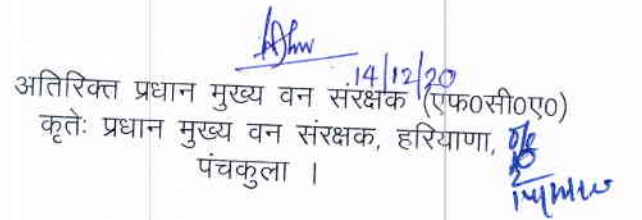 14/12/20
अतिरिक्त प्रधान मुख्य वन संरक्षक (एफ0सी0ए0)
कृतेः प्रधान मुख्य वन संरक्षक, हरियाणा,
पंचकुला ।